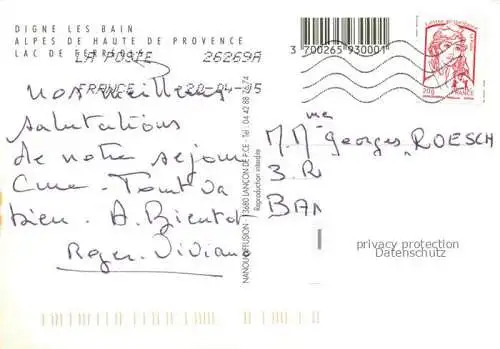 DIGNE LES BAIN
ALPES DE HAUTE DE PROVENCE
LAC DE FERREOLE
LA POSTE 26269A
FRANCE 20-04-15
3 700265 930001
20g
FRANCE
Nos meilleures
salutations
de notre séjour
Cure - Tout va
bien. A Bientot
Roger. Viviane
me
M.M Georges ROESCH
3.R
BAN
13680 LANCON DE P.CE - Tél. 04 42 88
Reproduction interdite
privacy protection
Datenschutz